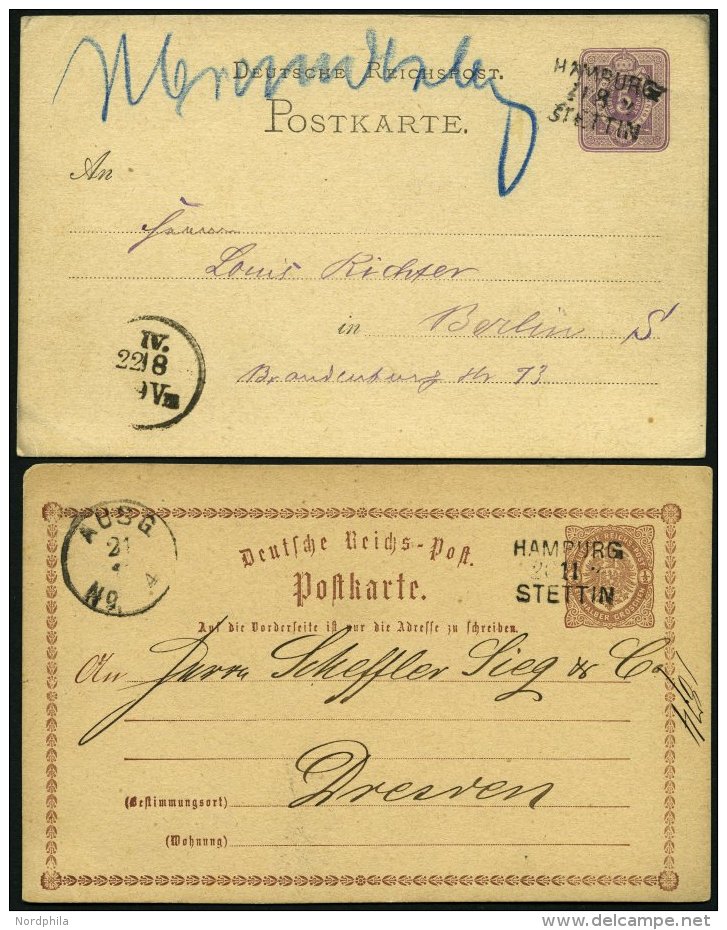 DEUTSCHE REICHSPOST.
POSTKARTE.
HAMBURG
STETTIN
An
Herrn
Louis Richter
in Berlin S
Brandenburg Str 73
IV.
22 8
9 Vm
AUSG
21
4
No
Deutsche Reichs-Post.
Postkarte.
HAMBURG
11
STETTIN
Auf die Vorderseite ist nur die Adresse zu schreiben.
An Herrn Scheffler Sieg & Co
Dresden
(Bestimmungsort)
(Wohnung)
Nordphila
delcampe.net